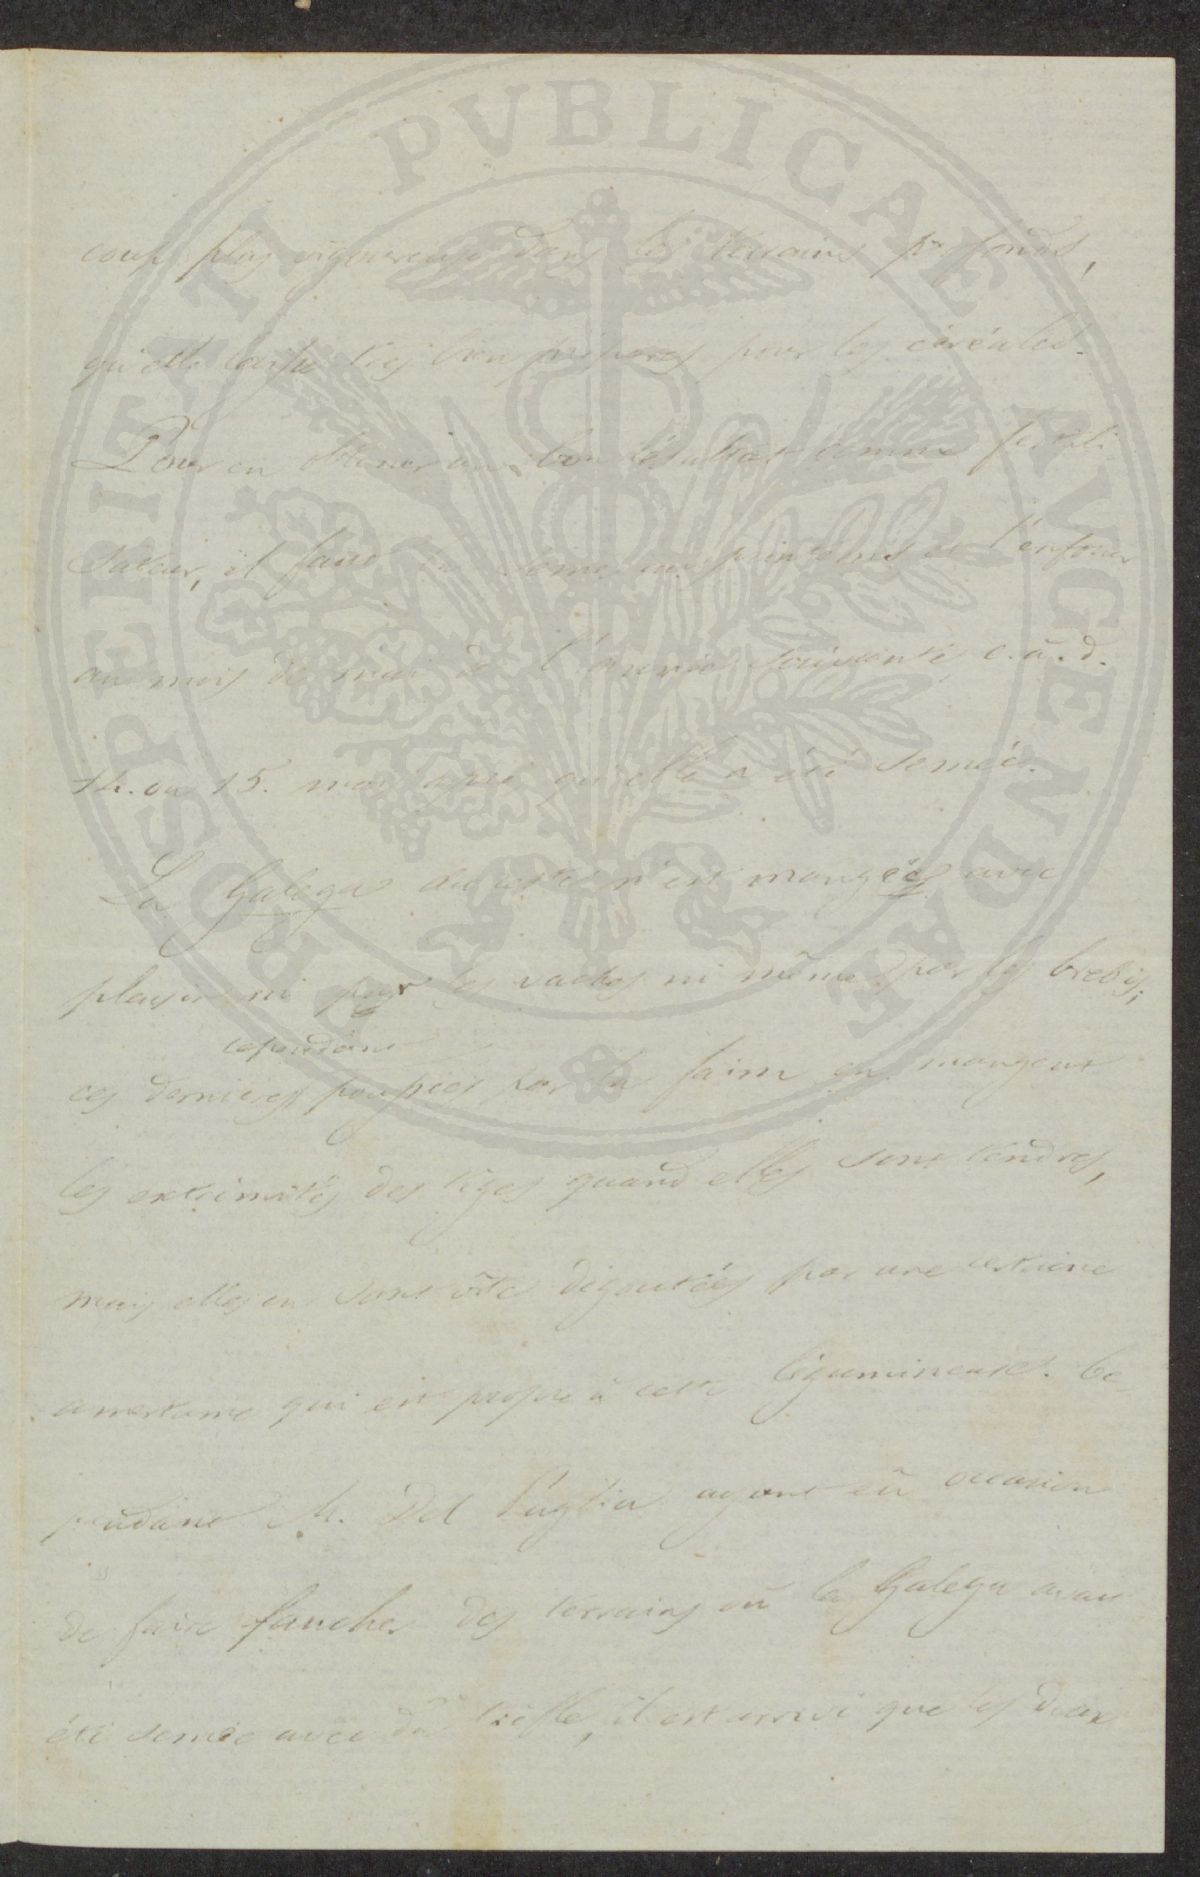 PROSPERITATI PVBLICAE AVGENDAE
coup plus vigoureuse dans les terrains profonds,
qu'elle laisse très bien préparés pour les céréales.
Pour en obtenir un bon résultat comme fertili-
sateur, il faut la semer au printems et l'enfouir
au mois de mai de l'année suivante, c. à. d.
14. ou 15. mois après qu'elle a été semée.
La Galega du reste n'est mangée avec
plaisir ni par les vaches ni même par les brebis;
cependant
ces dernières poussées par la faim en mangent
les extrémités des tiges quand elles sont tendres,
mais elles en sont vîte dégoutées par une certaine
amertume qui est propre à cette légumineuse. Ce-
pendant M. Del Puglia ayant eû occasion
de faire faucher des terrains où la Galega avait
été semée avec du trèfle, il est arrivé que les deux